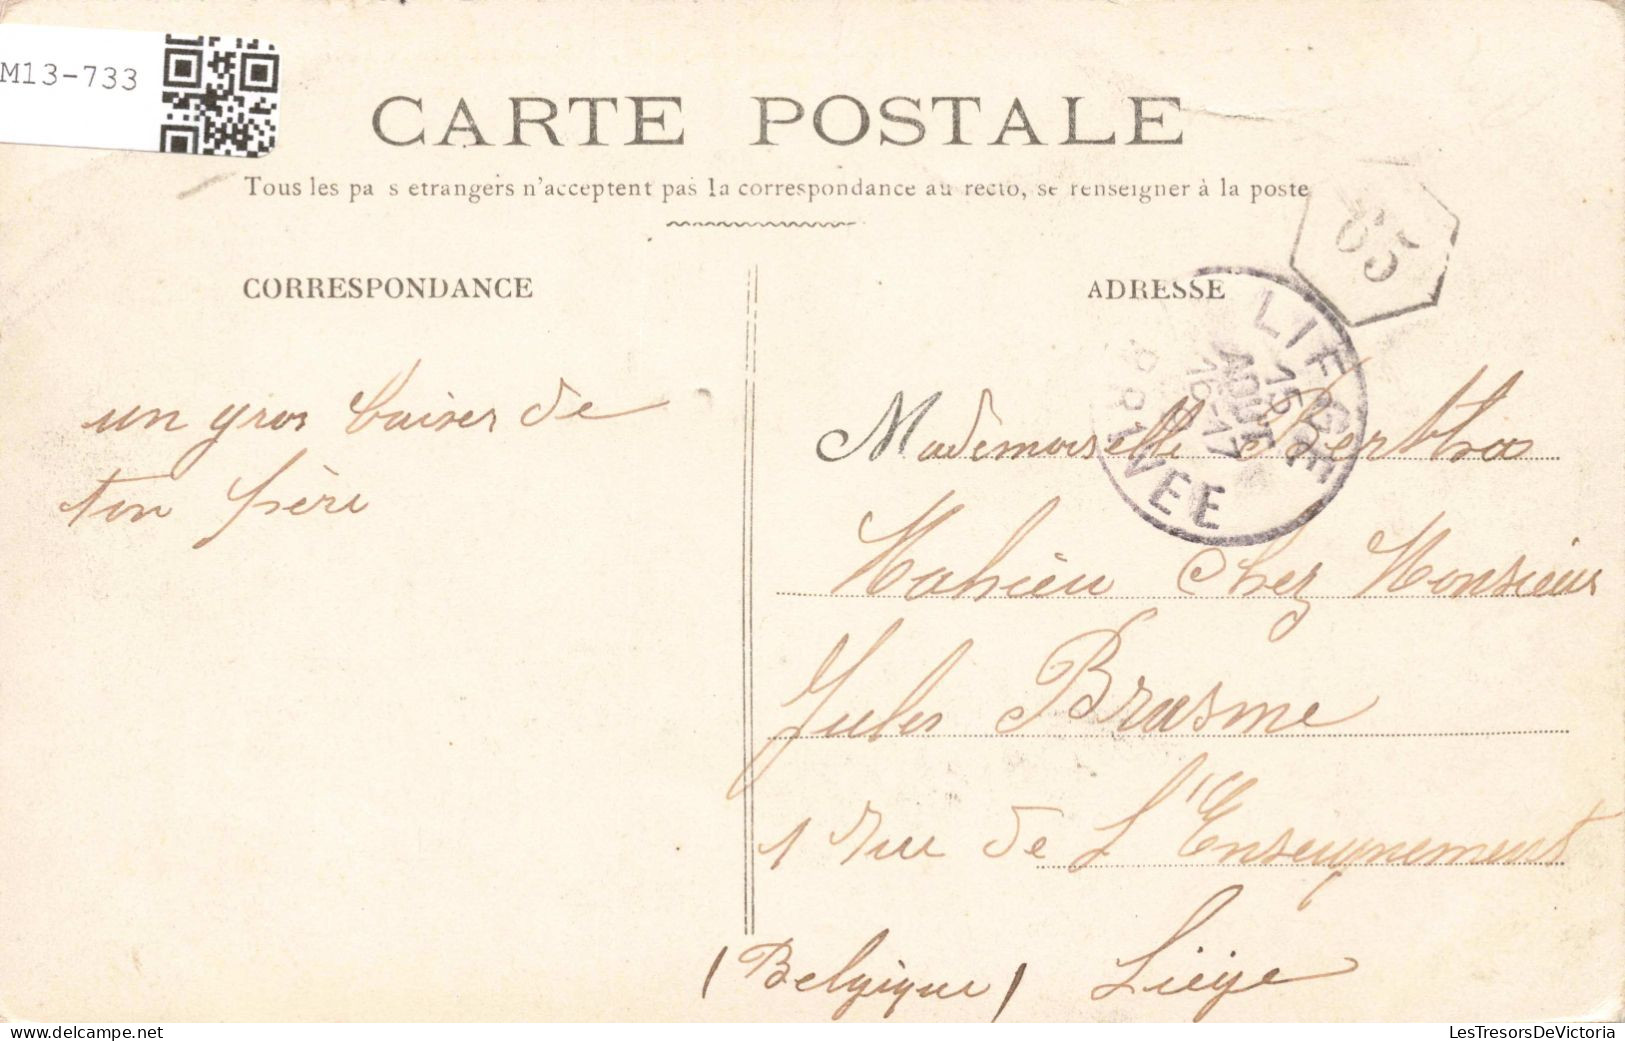 M13-733
CARTE POSTALE
Tous les pa s etrangers n'acceptent pas la correspondance au recto, se renseigner à la poste
65
CORRESPONDANCE
ADRESSE
LIEGE
15
AOUT
16-17
ARRIVEE
un gros baiser de
ton frère
Mademoiselle Bertha
Mahieu Chez Monsieur
Jules Brasme
1 rue de L'Enseignement
(Belgique) Liège
LesTresorsDeVictoria
delcampe.net